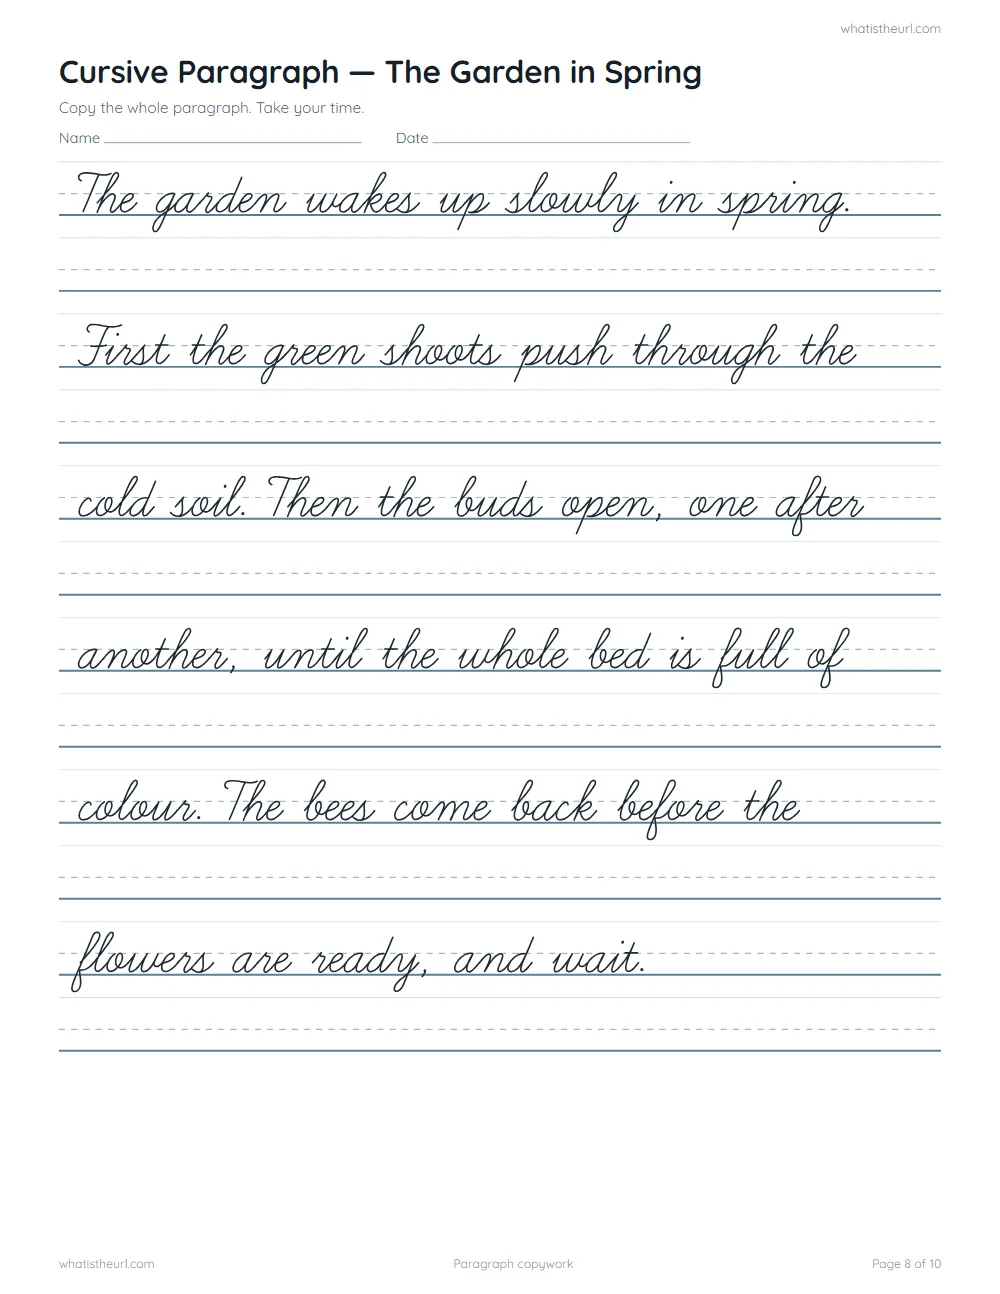 whatistheurl.com
Cursive Paragraph — The Garden in Spring
Copy the whole paragraph. Take your time.
Name Date
The garden wakes up slowly in spring.
First the green shoots push through the
cold soil. Then the buds open, one after
another, until the whole bed is full of
colour. The bees come back before the
flowers are ready, and wait.
whatistheurl.com Paragraph copywork Page 8 of 10